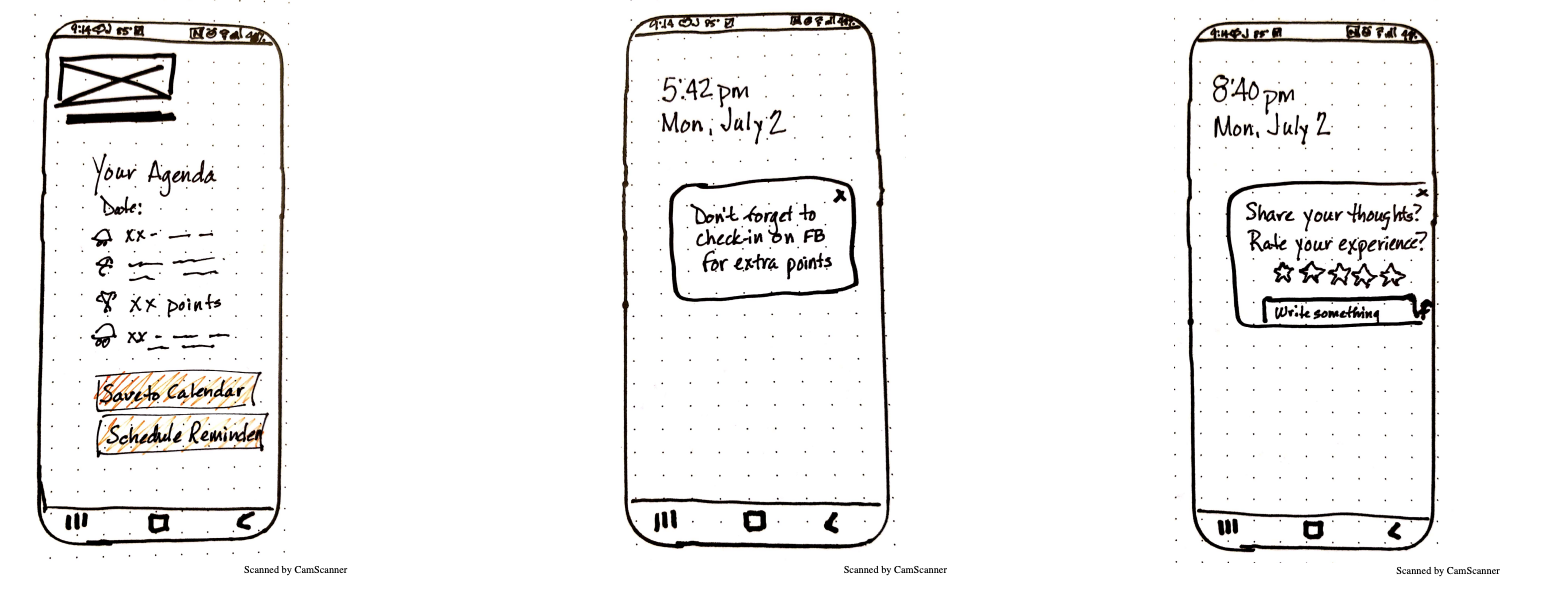 9:14 85°
48%
Your Agenda
Date:
xx -
xx points
xx -
Save to Calendar
Schedule Reminder
Scanned by CamScanner
9:14 85°
5:42 pm
Mon, July 2
x
Don't forget to
check-in on FB
for extra points
Scanned by CamScanner
9:14 85°
8:40 pm
Mon, July 2
x
Share your thoughts?
Rate your experience?
Write something
Scanned by CamScanner